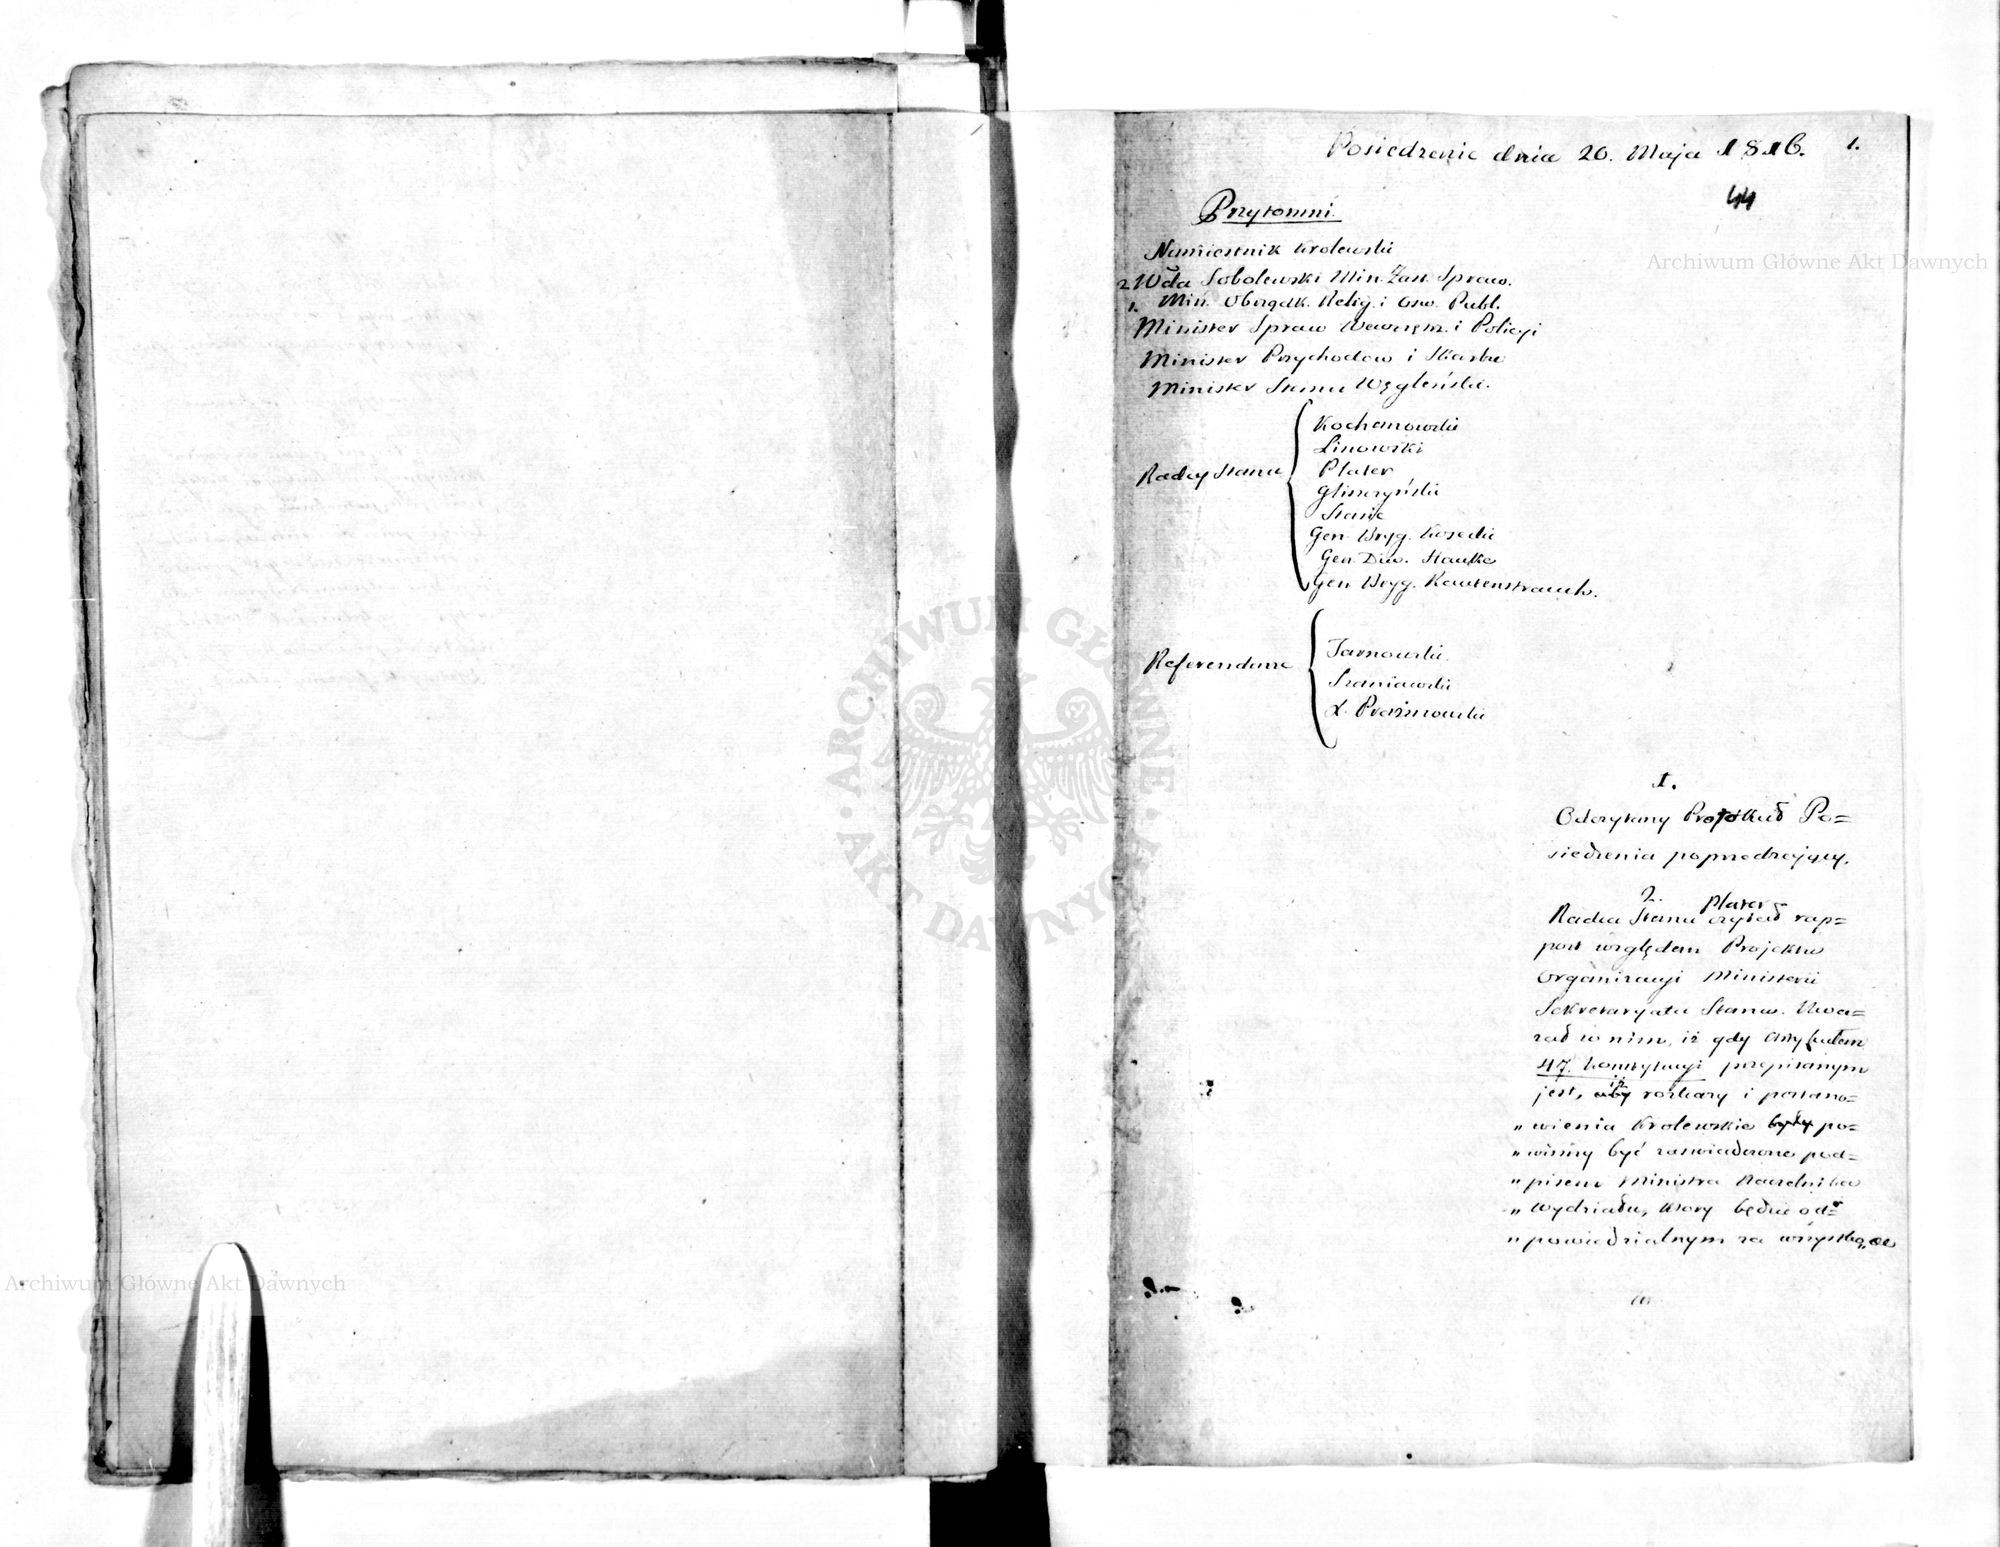 Posiedzenie dnia 20. Maja 1816. 1.
44
Przytomni
Namiestnik Krolewski
2 Wda Sobolewski Min. Zas. Spraw.
1. Min. Obrządk. Relig. i Osw. Publ.
Minister Spraw Wewnętrz. i Policyi
Minister Przychodow i Skarbu
Minister Stanu Węgleński.
Radcy Stanu
Kochanowski
Linowski
Plater
Gliszczyński
Staszic
Gen. Bryg. Kosecki
Gen. Diw. Hauke
Gen Bryg. Rautenstrauch.
Referendarze
Tarnowski.
Szaniawski
X. Prażmowski
1.
Odczytany Protokuł Po=
siedzenia poprzedzający.
2.
Plater
Radca Stanu czytał rap=
port względem Projektu
Organizacyi Ministerii
Sekretaryatu Stanu. Uwa=
żał w nim, iż gdy Artykułem
47. Konstytucyi przepisanym
iż
jest, aby rozkazy i postano=
„wienia Krolewskie były po=
„winny być zaswiadczone pod=
„pisem Ministra Naczelnika
„Wydziału, ktory będzie od=
„powiedzialnym za wszystko, co
Archiwum Główne Akt Dawnych
Archiwum Główne Akt Dawnych
· ARCHIWUM GŁÓWNE · AKT DAWNYCH